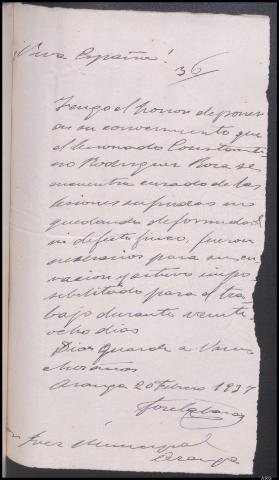 Viva España!
36
Tengo el honor de poner
en su conocimiento que
el lesionado Constanti
no Rodriguez Roca se
encuentra curado de las
lesiones sufridas no
quedando deformidad
ni defecto fisico, fueron
necesarios para su cu
racion y estuvo impo
sibilitado para el tra
bajo durante veinti
ocho dias
Dios guarde a V
muchos años
Aranga 20 Febrero 1937
Jose
Juez Municipal
Aranga